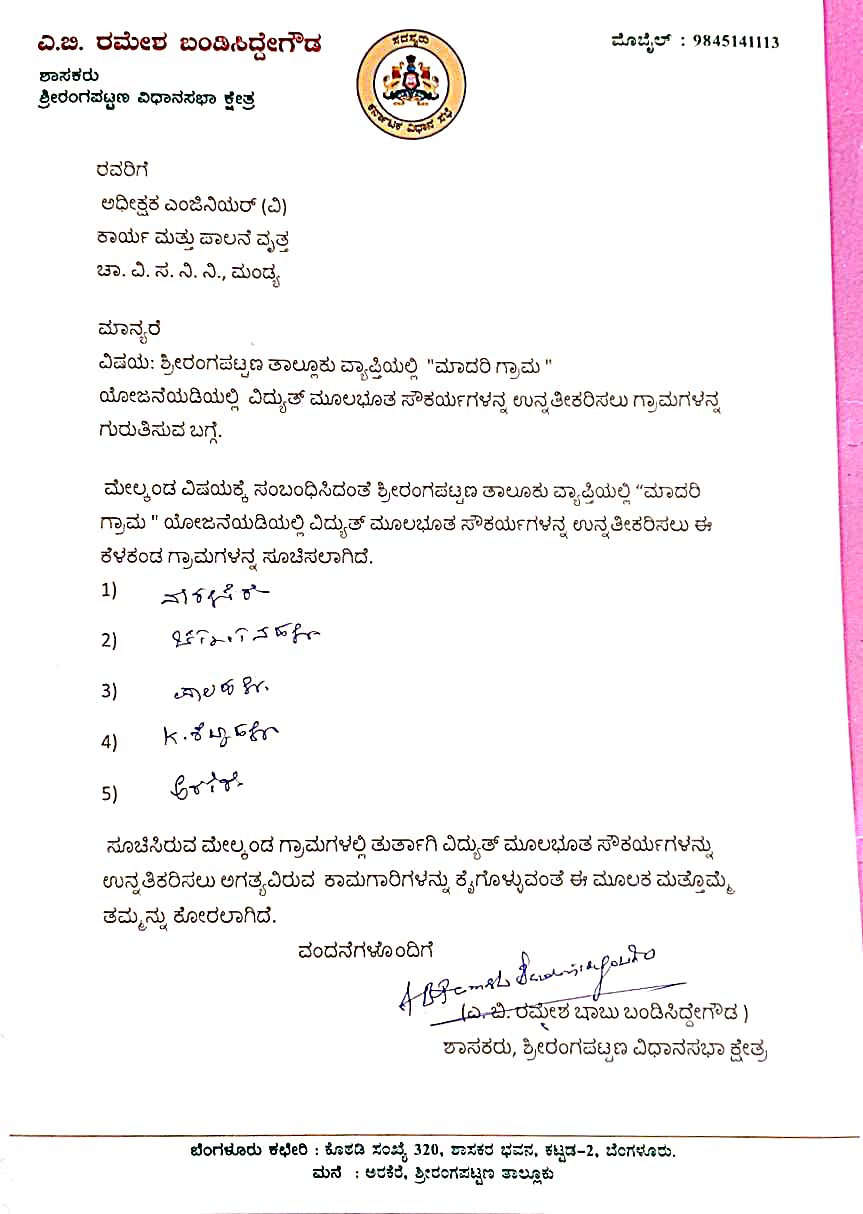 ಎ.ಬಿ. ರಮೇಶ ಬಂಡಿಸಿದ್ದೇಗೌಡ
ಶಾಸಕರು
ಶ್ರೀರಂಗಪಟ್ಟಣ ವಿಧಾನಸಭಾ ಕ್ಷೇತ್ರ
ಸದಸ್ಯರು
ಕರ್ನಾಟಕ ವಿಧಾನ ಸಭೆ
ಮೊಬೈಲ್ : 9845141113
ರವರಿಗೆ
ಅಧೀಕ್ಷಕ ಎಂಜಿನಿಯರ್ (ವಿ)
ಕಾರ್ಯ ಮತ್ತು ಪಾಲನೆ ವೃತ್ತ
ಚಾ. ವಿ. ಸ. ನಿ. ನಿ., ಮಂಡ್ಯ
ಮಾನ್ಯರೆ
ವಿಷಯ: ಶ್ರೀರಂಗಪಟ್ಟಣ ತಾಲ್ಲೂಕು ವ್ಯಾಪ್ತಿಯಲ್ಲಿ "ಮಾದರಿ ಗ್ರಾಮ "
ಯೋಜನೆಯಡಿಯಲ್ಲಿ ವಿದ್ಯುತ್ ಮೂಲಭೂತ ಸೌಕರ್ಯಗಳನ್ನ ಉನ್ನತೀಕರಿಸಲು ಗ್ರಾಮಗಳನ್ನ
ಗುರುತಿಸುವ ಬಗ್ಗೆ.
ಮೇಲ್ಕಂಡ ವಿಷಯಕ್ಕೆ ಸಂಬಂಧಿಸಿದಂತೆ ಶ್ರೀರಂಗಪಟ್ಟಣ ತಾಲೂಕು ವ್ಯಾಪ್ತಿಯಲ್ಲಿ “ಮಾದರಿ
ಗ್ರಾಮ " ಯೋಜನೆಯಡಿಯಲ್ಲಿ ವಿದ್ಯುತ್ ಮೂಲಭೂತ ಸೌಕರ್ಯಗಳನ್ನ ಉನ್ನತೀಕರಿಸಲು ಈ
ಕೆಳಕಂಡ ಗ್ರಾಮಗಳನ್ನ ಸೂಚಿಸಲಾಗಿದೆ.
1)
2)
3)
4) K. ಶೆಟ್ಟಹಳ್ಳಿ
5) ಅರಕೆರೆ
ಸೂಚಿಸಿರುವ ಮೇಲ್ಕಂಡ ಗ್ರಾಮಗಳಲ್ಲಿ ತುರ್ತಾಗಿ ವಿದ್ಯುತ್ ಮೂಲಭೂತ ಸೌಕರ್ಯಗಳನ್ನು
ಉನ್ನತಿಕರಿಸಲು ಅಗತ್ಯವಿರುವ ಕಾಮಗಾರಿಗಳನ್ನು ಕೈಗೊಳ್ಳುವಂತೆ ಈ ಮೂಲಕ ಮತ್ತೊಮ್ಮೆ
ತಮ್ಮನ್ನು ಕೋರಲಾಗಿದೆ.
ವಂದನೆಗಳೊಂದಿಗೆ
(ಎ. ಬಿ. ರಮೇಶ ಬಾಬು ಬಂಡಿಸಿದ್ದೇಗೌಡ )
ಶಾಸಕರು, ಶ್ರೀರಂಗಪಟ್ಟಣ ವಿಧಾನಸಭಾ ಕ್ಷೇತ್ರ
ಬೆಂಗಳೂರು ಕಛೇರಿ : ಕೊಠಡಿ ಸಂಖ್ಯೆ 320, ಶಾಸಕರ ಭವನ, ಕಟ್ಟಡ-2, ಬೆಂಗಳೂರು.
ಮನೆ : ಅರಕೆರೆ, ಶ್ರೀರಂಗಪಟ್ಟಣ ತಾಲ್ಲೂಕು